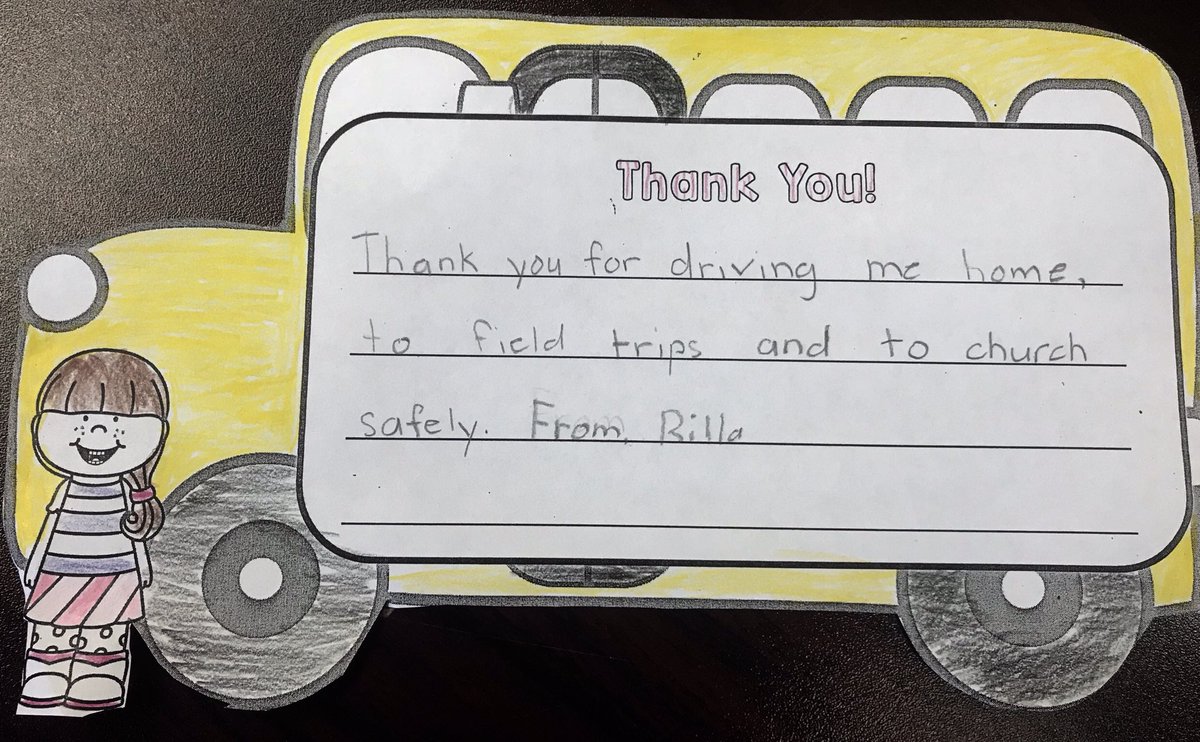 Thank You!
Thank you for driving me home,
to field trips and to church
safely. From, Rilla